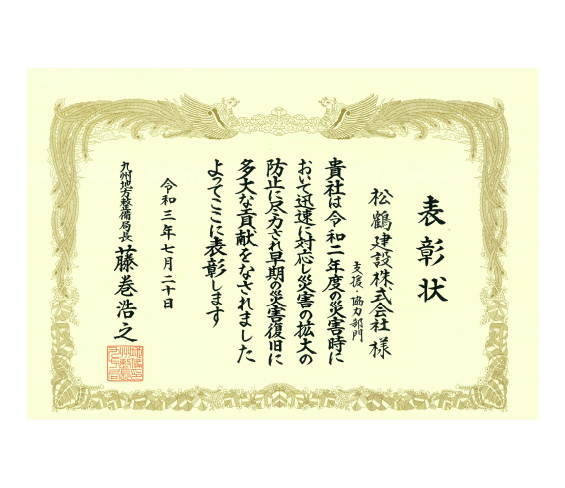 表彰状
松鶴建設株式会社 様
支援・協力部門
貴社は令和二年度の災害時に
おいて迅速に対応し災害の拡大の
防止に尽力され早期の災害復旧に
多大な貢献をなされました
よってここに表彰します
令和三年七月二十日
九州地方整備局長 藤巻浩之